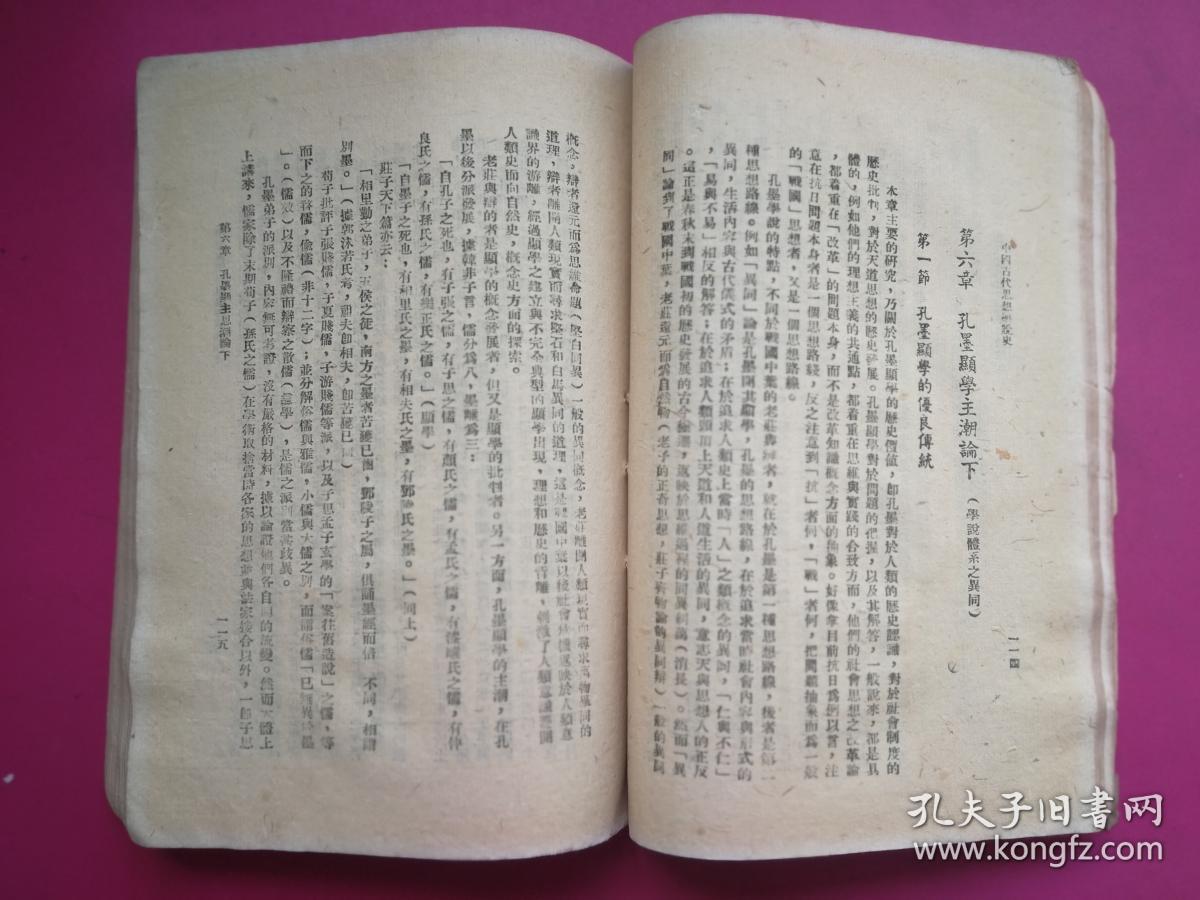 中國古代思想學說史
一一四
第六章　孔墨顯學主潮論下（學說體系之異同）
第一節　孔墨顯學的優良傳統
本章主要的研究，乃關於孔墨顯學的歷史價值，卽孔墨對於人類的歷史認識，對於社會制度的
歷史批判，對於天道思想的歷史發展。孔墨顯學對於問題的把握，以及其解答，一般說來，都是具
體的，例如他們的理想主義的共通點，都着重在思維與實踐的合致方面，他們的社會思想之改革論
，都着重在「改革」的問題本身，而不是改革知識概念方面的抽象。好像拿目前抗日爲例以言，注
意在抗日問題本身者是一個思想路綫，反之注意到「抗」者何，「戰」者何，把問題抽象而爲一般
的「戰國」思想者，又是一個思想路線。
孔墨學說的特點，不同於戰國中葉的老莊與辯者，就在於孔墨是第一種思想路線，後者是第二
種思想路線。例如「異同」論是孔墨開其顯學，孔墨的思想路線，在於追求當時社會內容與形式的
異同，生活內容與古代儀式的矛盾；在於追求人類史上當時「人」之類概念的異同，「仁與不仁」
，「易與不易」相反的解答；在於追求人類頭頂上天道和人道生活的異同，意志天與思想人的正反
。這正是春秋末到戰國初的歷史發展的古今變遷，反映於思維過程的同異利萬（消長）。然而「異
同」論到了戰國中葉，老莊還元而爲自然物（老子的正奇思想，莊子齊物論的異同辯）一般的異同
概念，辯者還元而爲思維命題（堅白同異）一般的異同概念，老莊離開人類現實而尋求萬物異同的
道理，辯者離開人類現實而尋求堅石和白馬異同的道理，這是戰國中葉以後社會危機反映於人類意
識界的游離，經過顯學之建立與不完全典型的顯學出現，理想和歷史的背離，刺激了人類意識要開
人類史而向自然史，概念史方面的探索。
老莊與辯者是顯學的概念發展者，但又是顯學的批判者。另一方面，孔墨顯學的主潮，在孔
墨以後分派發展，據韓非子言，儒分爲八，墨離爲三：
「自孔子之死也，有子張之儒，有子思之儒，有顏氏之儒，有孟氏之儒，有漆雕氏之儒，有仲
良氏之儒，有孫氏之儒，有樂正氏之儒。」（顯學）
「自墨子之死也，有相里氏之墨，有相夫氏之墨，有鄧陵氏之墨。」（同上）
莊子天下篇亦云：
「相里勤之弟子，五侯之徒，南方之墨者苦獲已齒，鄧陵子之屬，俱誦墨經而倍　不同，相謂
別墨。」（據郭沫若氏寫，相夫卽相夫，卽苦獲已）
荀子批評子張賤儒，子夏賤儒，子游賤儒等派，以及子思孟子玄學的「案往舊造說」之儒，等
而下之的瞀儒，偷儒（非十二子）；並分解俗儒與雅儒，小儒與大儒之別，而謂俗儒「已無異於墨
」。（儒效）以及不隆禮而辯察之散儒（勸學），是儒之派別當甚歧異。
孔墨弟子的派別，內容無可考證，沒有嚴格的材料，據以論證他們各自間的流變。然而大體上
上講來，儒家除了末期荀子（孫氏之儒）在學術取捨當時各家的思想並與法家接合以外，一部子思
第六章　孔墨顯學主潮論下
一一五
孔夫子旧书网
www.kongfz.com